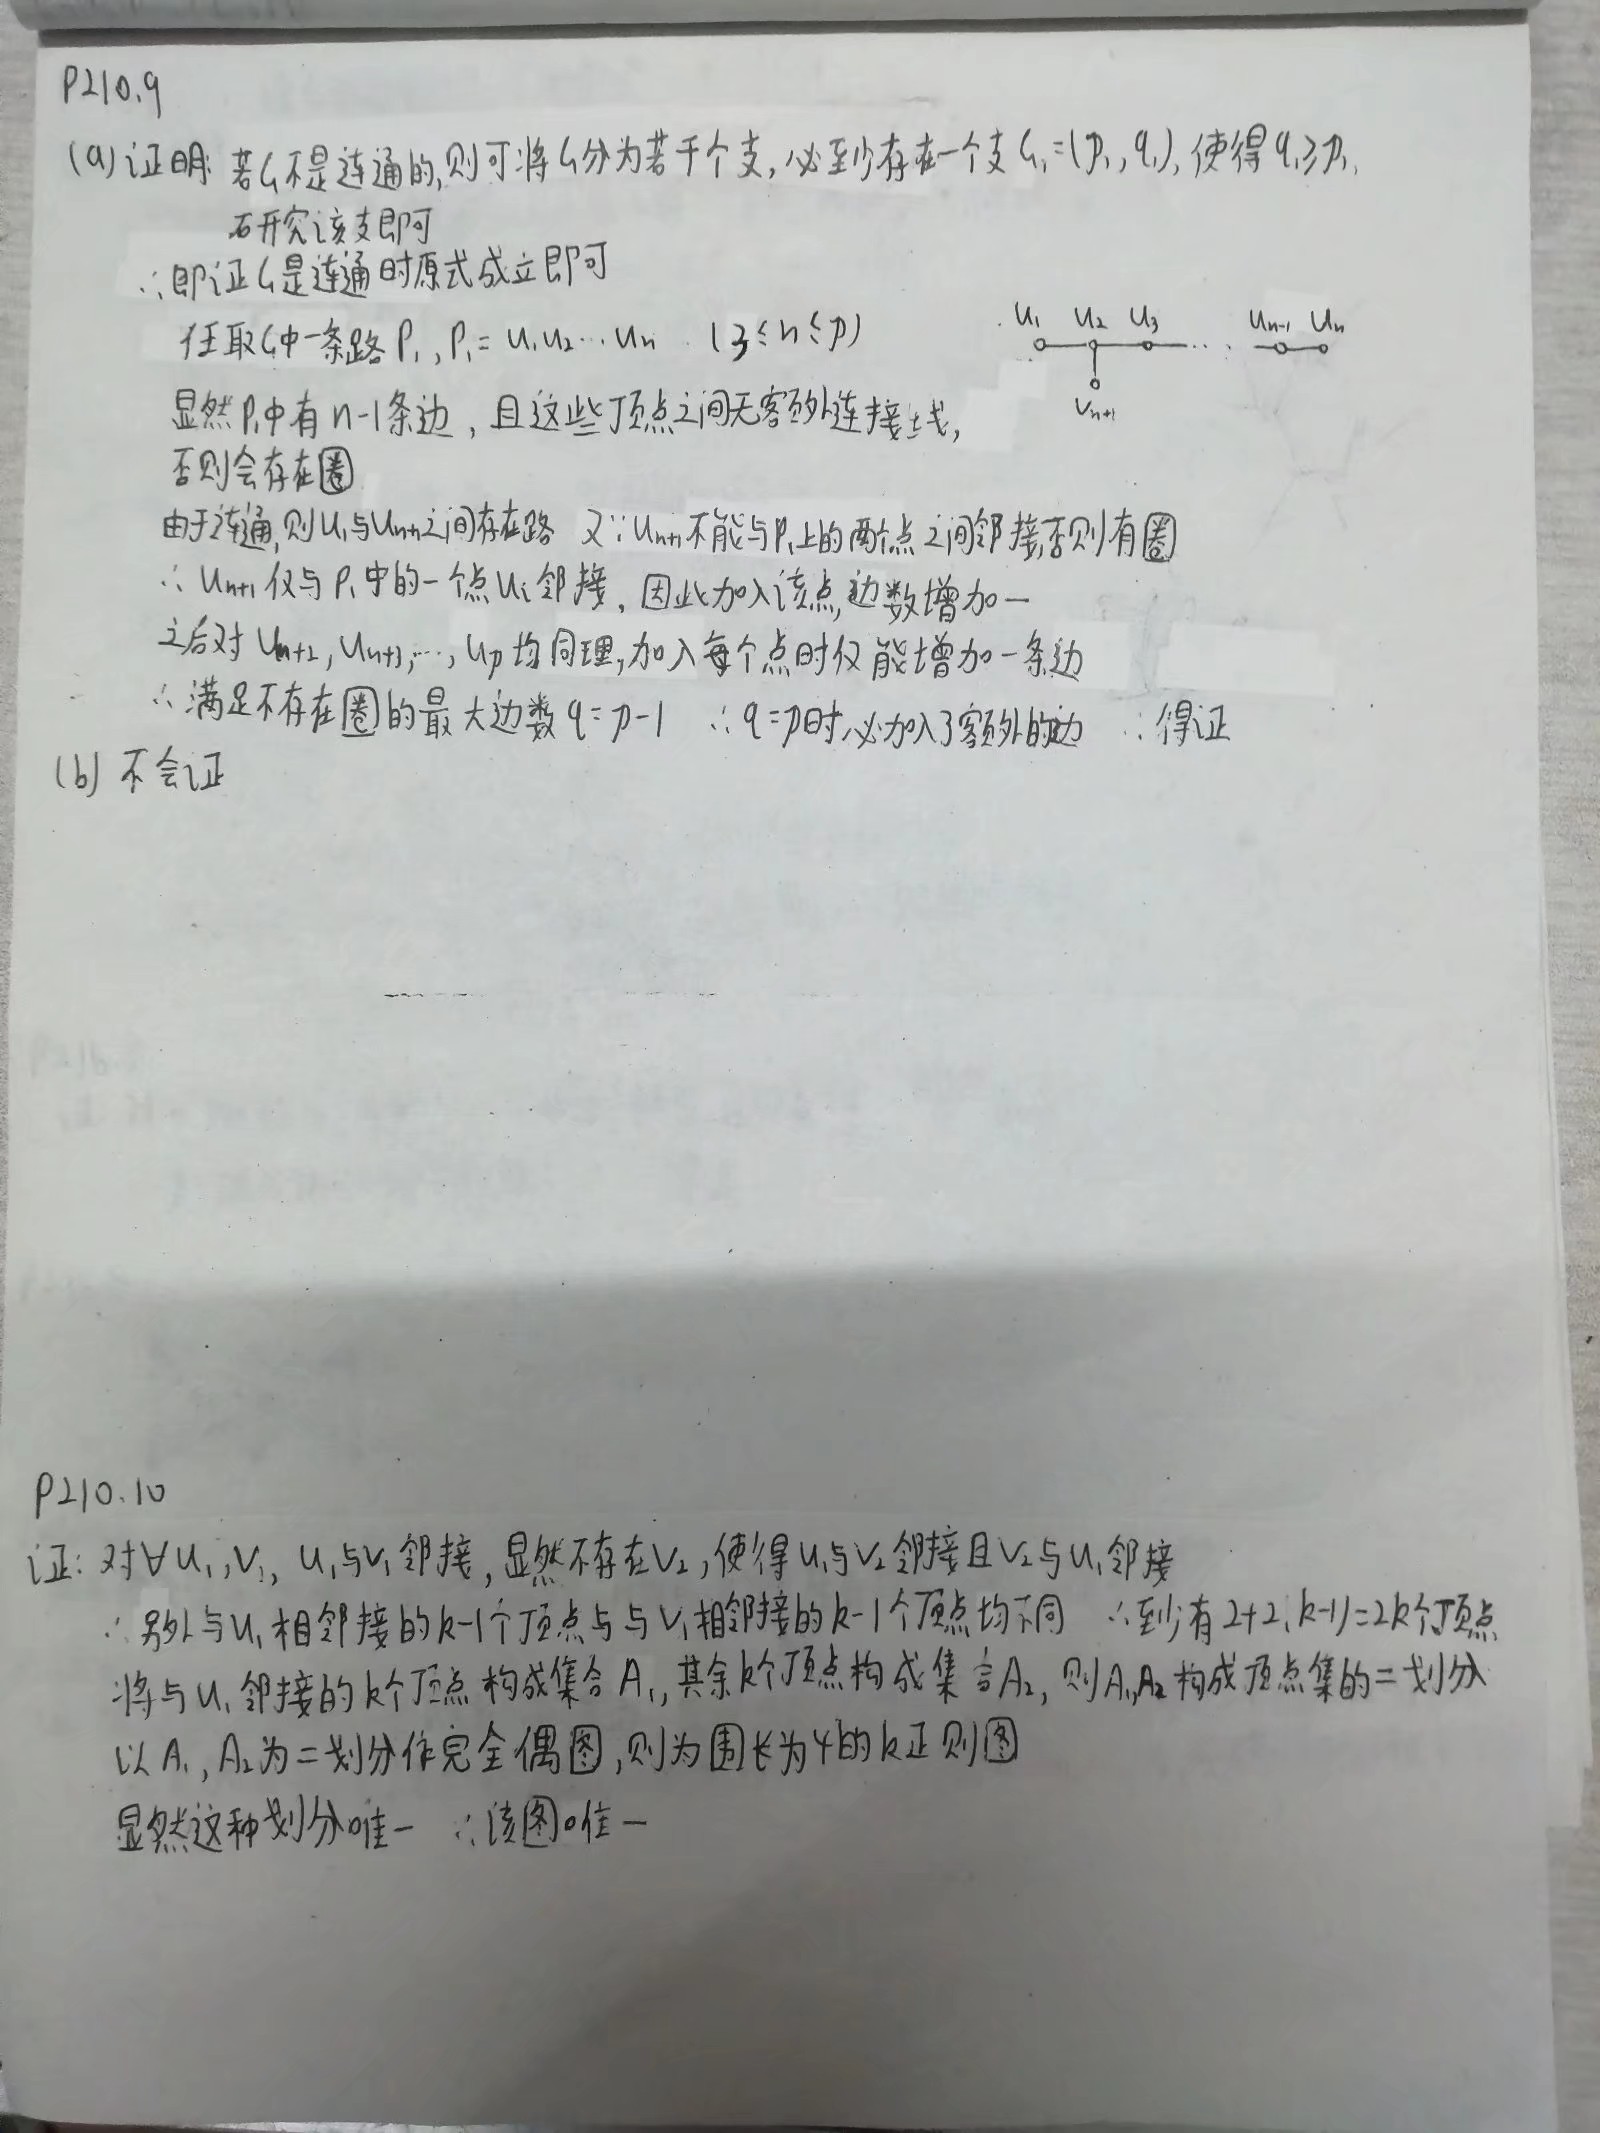 P210.9
(a) 证明: 若G不是连通的,则可将G分为若干个支,必至少存在一个支G₁=(p₁,q₁),使得q₁≥p₁,
研究该支即可
∴即证G是连通时原式成立即可
任取G中一条路P₁,P₁=u₁u₂…un (3≤n≤p)
u₁ u₂ u₃ un-1 un
vn+1
显然P₁中有n-1条边,且这些顶点之间无额外连接线,
否则会存在圈
由于连通,则u₁与un+1之间存在路 又∵un+1不能与P₁上的两个点之间邻接,否则有圈
∴un+1仅与P₁中的一个点ui邻接,因此加入该点,边数增加一
之后对un+2,un+3,…,up均同理,加入每个点时仅能增加一条边
∴满足不存在圈的最大边数q=p-1 ∴q=p时,必加入了额外的边 ∴得证
(b) 不会证
P210.10
证: 对∀u₁,v₁, u₁与v₁邻接,显然不存在v₂,使得u₁与v₂邻接且v₂与u₁邻接
∴另外与u₁相邻接的k-1个顶点与与v₁相邻接的k-1个顶点均不同 ∴至少有2+2(k-1)=2k个顶点
将与u₁邻接的k个顶点构成集合A₁,其余k个顶点构成集合A₂,则A₁,A₂构成顶点集的二划分
以A₁,A₂为二划分作完全偶图,则为围长为4的k正则图
显然这种划分唯一 ∴该图唯一